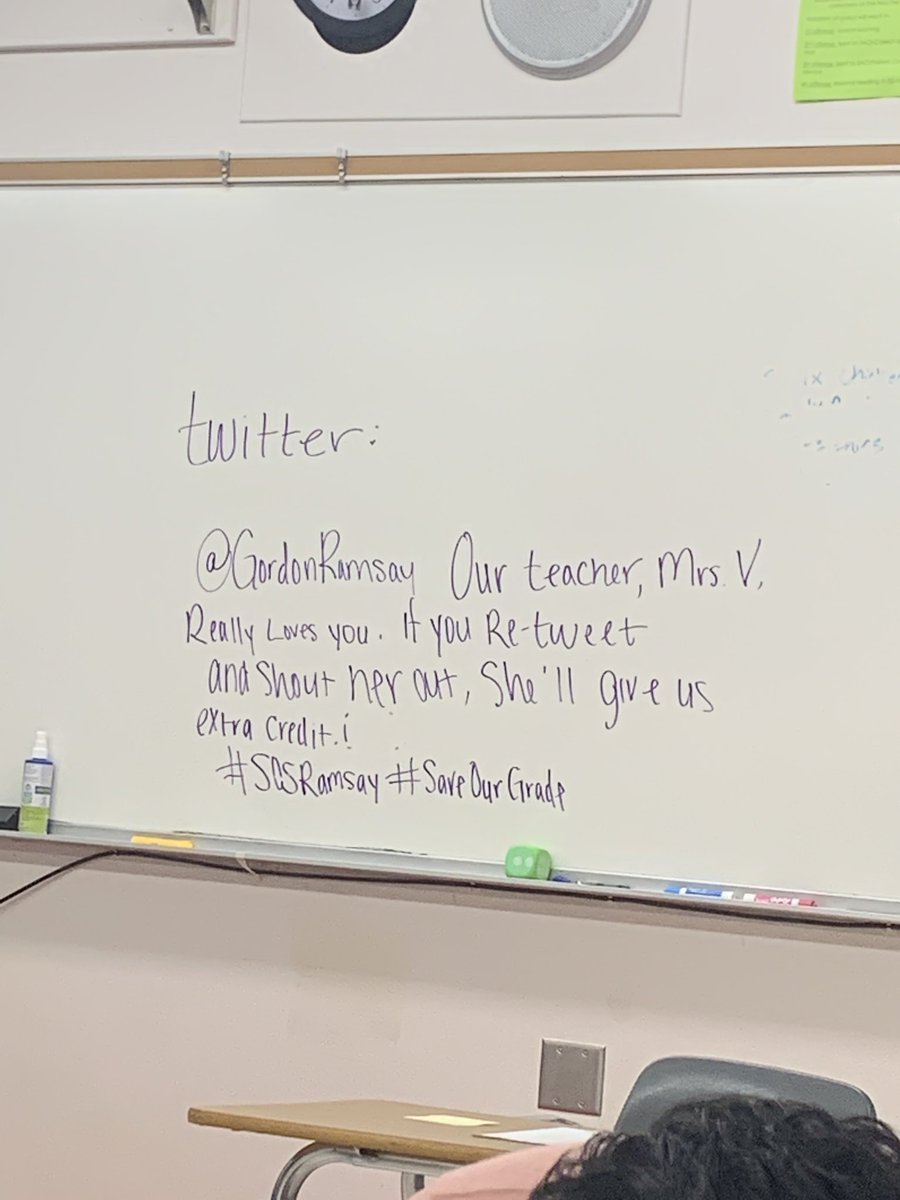 twitter:
@GordonRamsay Our teacher, Mrs. V,
Really Loves you. If you Re-tweet
and Shout her out, She'll give us
extra Credit.!
#SCSRamsay #SaveOurGrade